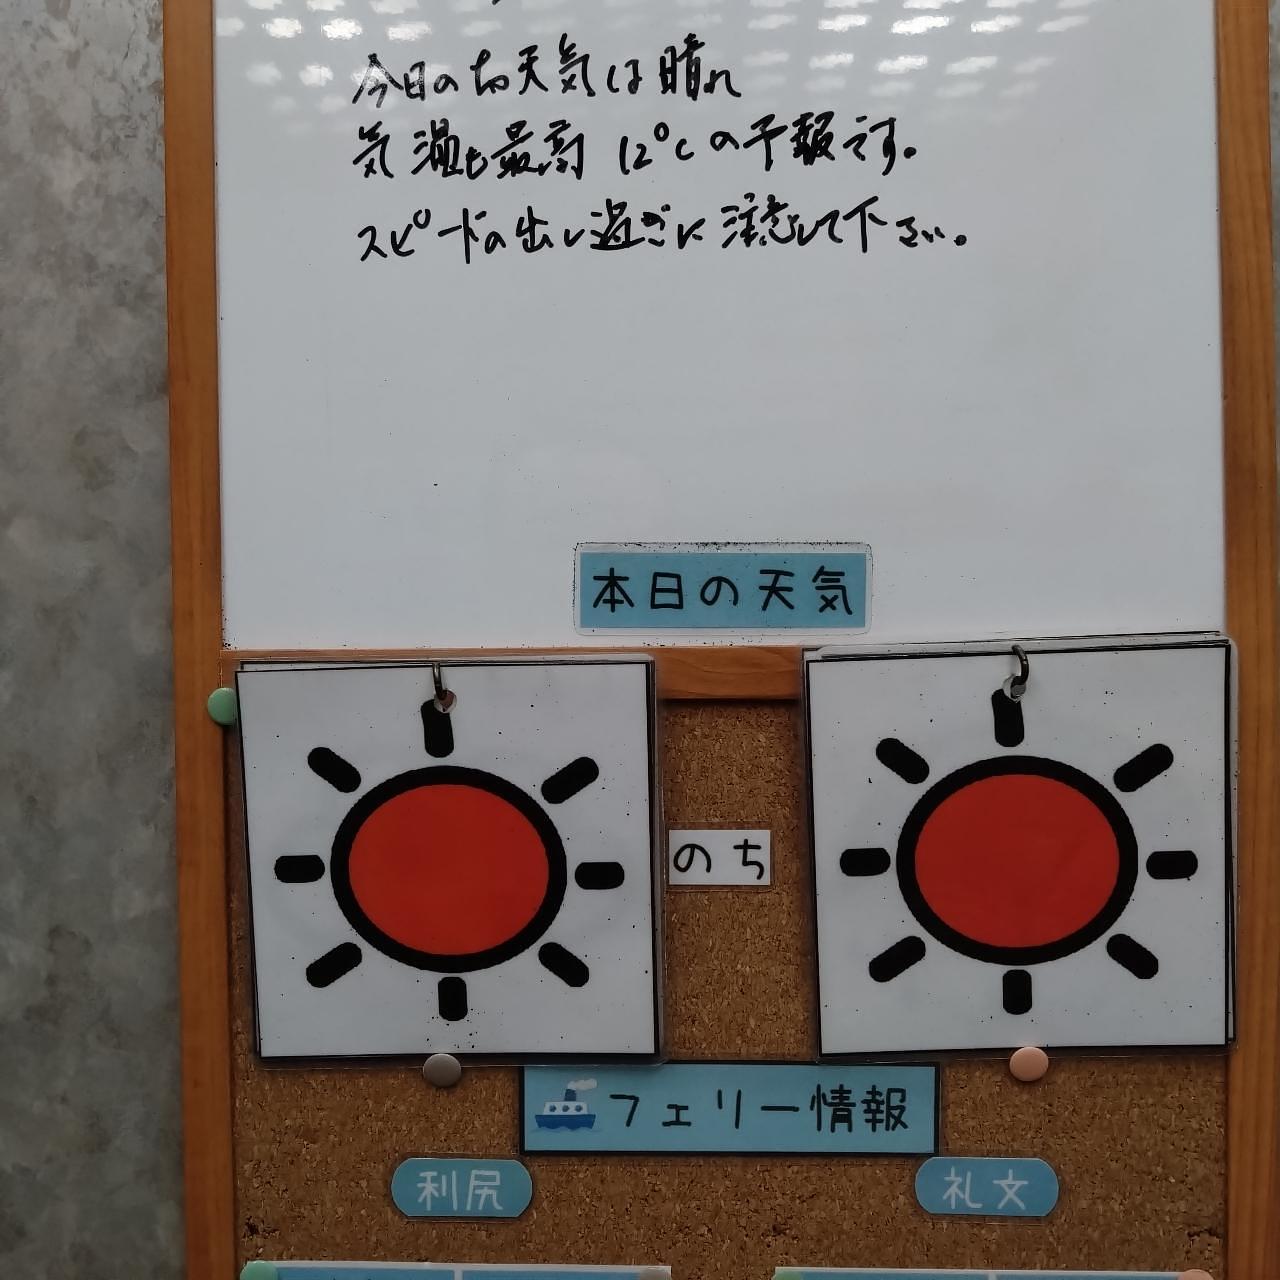 今日のお天気は晴れ
気温も最高12℃の予報です。
スピードの出し過ぎに注意して下さい。
本日の天気
のち
フェリー情報
利尻
礼文